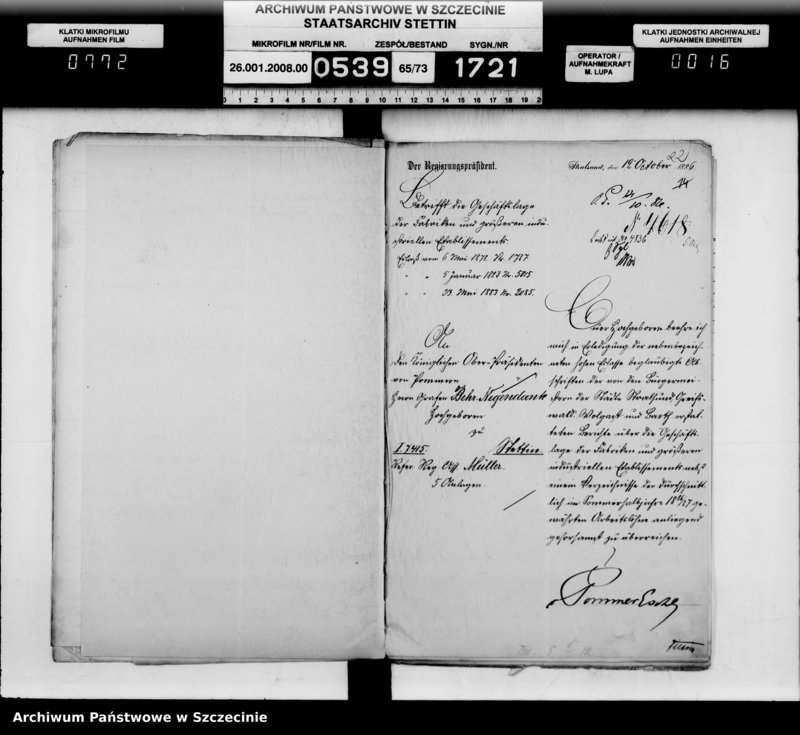 ARCHIWUM PAŃSTWOWE W SZCZECINIE
STAATSARCHIV STETTIN
KLATKI MIKROFILMU
AUFNAHMEN FILM
0772
MIKROFILM NR/FILM NR. ZESPÓŁ/BESTAND SYGN./NR
26.001.2008.00 0539 65/73 1721
OPERATOR /
AUFNAHMEKRAFT
M. LUPA
KLATKI JEDNOSTKI ARCHIWALNEJ
AUFNAHMEN EINHEITEN
0016
0 1 2 3 4 5 6 7 8 9 10 11 12 13 14 15 16 17 18 19 2
Der Regierungspräsident.
Stralsund, den 12 October 1886.
22
Betrifft die Geschäftslage
der Fabriken und größeren indu-
striellen Etablissements
Erlaß vom 6 Mai 1878. No. 1787
" " 5 Januar 1883 No.
" " 23. Mai 1883 No. 2085.
No 4618
An
den Königlichen Ober-Präsidenten
von Pommern
Herrn Grafen Behr-Negendank
Hochgeboren
zu
Stettin.
I. 7415.
Refer. Reg. Ass. Müller.
5 Anlagen.
Euer Hochgeboren beehre ich
mich in Erledigung der nebenbezeich-
neten hohen Erlasse beglaubigte Ab-
schriften der von den Bürgermei-
stern der Städte Stralsund, Greifs-
wald, Wolgast und Barth erstat-
teten Berichte über die Geschäfts-
lage der Fabriken und größeren
industriellen Etablissements nebst
einem Verzeichnisse der durchschnitt-
lich im Sommerhalbjahre ge-
währten Arbeitslöhne anliegend
gehorsamst zu überreichen.
v Pommer Esche
Archiwum Państwowe w Szczecinie